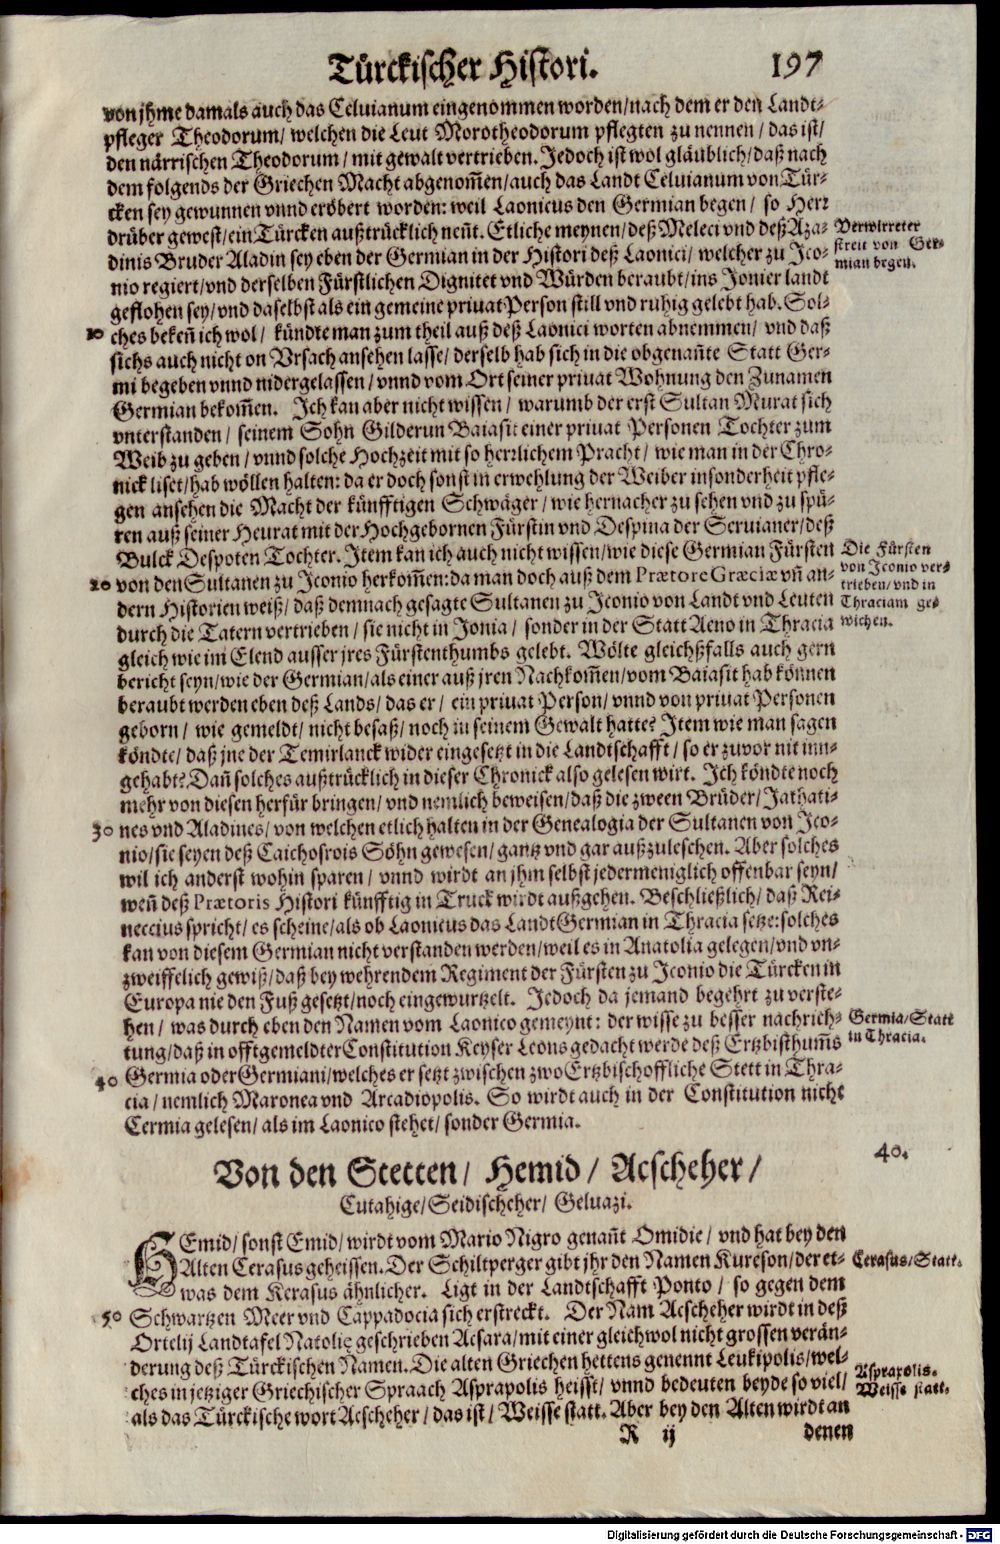 Türckischer Histori. 197
von jhme damals auch das Celuianum eingenommen worden/nach dem er den Landt-
pfleger Theodorum/ welchen die Leut Morotheodorum pflegten zu nennen / das ist/
den närrischen Theodorum / mit gewalt vertrieben. Jedoch ist wol gläublich/daß nach
dem folgends der Griechen Macht abgenom̃en/auch das Landt Celuianum von Tür-
cken sey gewunnen vnnd eröbert worden: weil Laonicus den Germian begen/ so Herr
drüber gewest/ein Türcken außtrücklich neñt. Etliche meynen/deß Meleci vnd deß Aza-
dinis Bruder Aladin sey eben der Germian in der Histori deß Laonici/ welcher zu Ico-
nio regiert/vnd derselben Fürstlichen Dignitet vnd Würden beraubt/ins Jonier landt
geflohen sey/vnd daselbst als ein gemeine priuat Person still vnd ruhig gelebt hab. Sol-
10 ches bekeñ ich wol/ kündte man zum theil auß deß Laonici worten abnemmen/ vnd daß
sichs auch nicht on Vrsach ansehen lasse/ derselb hab sich in die obgenañte Statt Ger-
mi begeben vnnd nidergelassen / vnnd vom Ort seiner priuat Wohnung den Zunamen
Germian bekom̃en. Ich kan aber nicht wissen/ warumb der erst Sultan Murat sich
vnterstanden/ seinem Sohn Gilderun Baiasit einer priuat Personen Tochter zum
Weib zu geben / vnnd solche Hochzeit mit so herrlichem Pracht / wie man in der Chro-
nick liset/hab wöllen halten: da er doch sonst in erwehlung der Weiber insonderheit pfle-
gen ansehen die Macht der künfftigen Schwäger / wie hernacher zu sehen vnd zu spü-
ren auß seiner Heurat mit der Hochgebornen Fürstin vnd Despina der Seruianer/deß
Bulck Despoten Tochter. Item kan ich auch nicht wissen/wie diese Germian Fürsten
20 von den Sultanen zu Iconio herkom̃en:da man doch auß dem Prætore Græciæ vñ an-
dern Historien weiß/ daß demnach gesagte Sultanen zu Iconio von Landt vnd Leuten
durch die Tatern vertrieben/ sie nicht in Jonia/ sonder in der Statt Aeno in Thracia
gleich wie im Elend ausser jres Fürstenthumbs gelebt. Wölte gleichßfalls auch gern
bericht seyn/wie der Germian/als einer auß jren Nachkom̃en/vom Baiasit hab können
beraubt werden eben deß Lands/ das er/ ein priuat Person/ vnnd von priuat Personen
geborn / wie gemeldt/ nicht besaß/ noch in seinem Gewalt hatte? Item wie man sagen
köndte/ daß jne der Temirlanck wider eingesetzt in die Landtschafft/ so er zuvor nit inn-
gehabt? Dañ solches außtrücklich in dieser Chronick also gelesen wirt. Ich köndte noch
mehr von diesen herfür bringen/ vnd nemlich beweisen/daß die zween Brüder/ Jathati-
30 nes vnd Aladines/ von welchen etlich halten in der Genealogia der Sultanen von Ico-
nio/sie seyen deß Caichosrois Söhn gewesen/ gantz vnd gar außzuleschen. Aber solches
wil ich anderst wohin sparen/ vnnd wirdt an jhm selbst jedermeniglich offenbar seyn/
weñ deß Prætoris Histori künfftig in Truck wirdt außgehen. Beschließlich/ daß Rei-
neccius spricht/ es scheine/als ob Laonicus das Landt Germian in Thracia setze:solches
kan von diesem Germian nicht verstanden werden/weil es in Anatolia gelegen/vnd vn-
zweiffelich gewiß/daß bey wehrendem Regiment der Fürsten zu Iconio die Türcken in
Europa nie den Fuß gesetzt/noch eingewurtzelt. Jedoch da jemand begehrt zu verste-
hen/ was durch eben den Namen vom Laonico gemeynt: der wisse zu besser nachrich-
tung/daß in offtgemeldter Constitution Keyser Leons gedacht werde deß Ertzbisthum̃s
40 Germia oder Germiani/welches er setzt zwischen zwo Ertzbischoffliche Stett in Thra-
cia/ nemlich Maronea vnd Arcadiopolis. So wirdt auch in der Constitution nicht
Cermia gelesen/ als im Laonico stehet/ sonder Germia.
Verwirreter
streit von Ger-
mian begen.
Die Fürsten
von Iconio ver-
trieben/vnd in
Thraciam ge-
wichen.
Germia/Statt
in Thracia.
Von den Stetten/ Hemid/ Acscheher/
40.
Cutahige/Seidischeher/ Geluazi.
HEmid/ sonst Emid/ wirdt vom Mario Nigro genañt Omidie/ vnd hat bey den
Alten Cerasus geheissen. Der Schiltperger gibt jhr den Namen Kureson/der et-
was dem Kerasus ähnlicher. Ligt in der Landtschafft Ponto/ so gegen dem
50 Schwartzen Meer vnd Cappadocia sich erstreckt. Der Nam Acscheher wirdt in deß
Ortelij Landtafel Natolie geschrieben Acsara/mit einer gleichwol nicht grossen verän-
derung deß Türckischen Namen. Die alten Griechen hettens genennt Leukipolis/wel-
ches in jetziger Griechischer Spraach Asprapolis heisst/ vnnd bedeuten beyde so viel/
als das Türckische wort Acscheher/ das ist/ Weisse statt. Aber bey den Alten wirdt an
Cerasus/Statt.
Asprapolis.
Weisse statt.
R ij denen
Digitalisierung gefördert durch die Deutsche Forschungsgemeinschaft - DFG